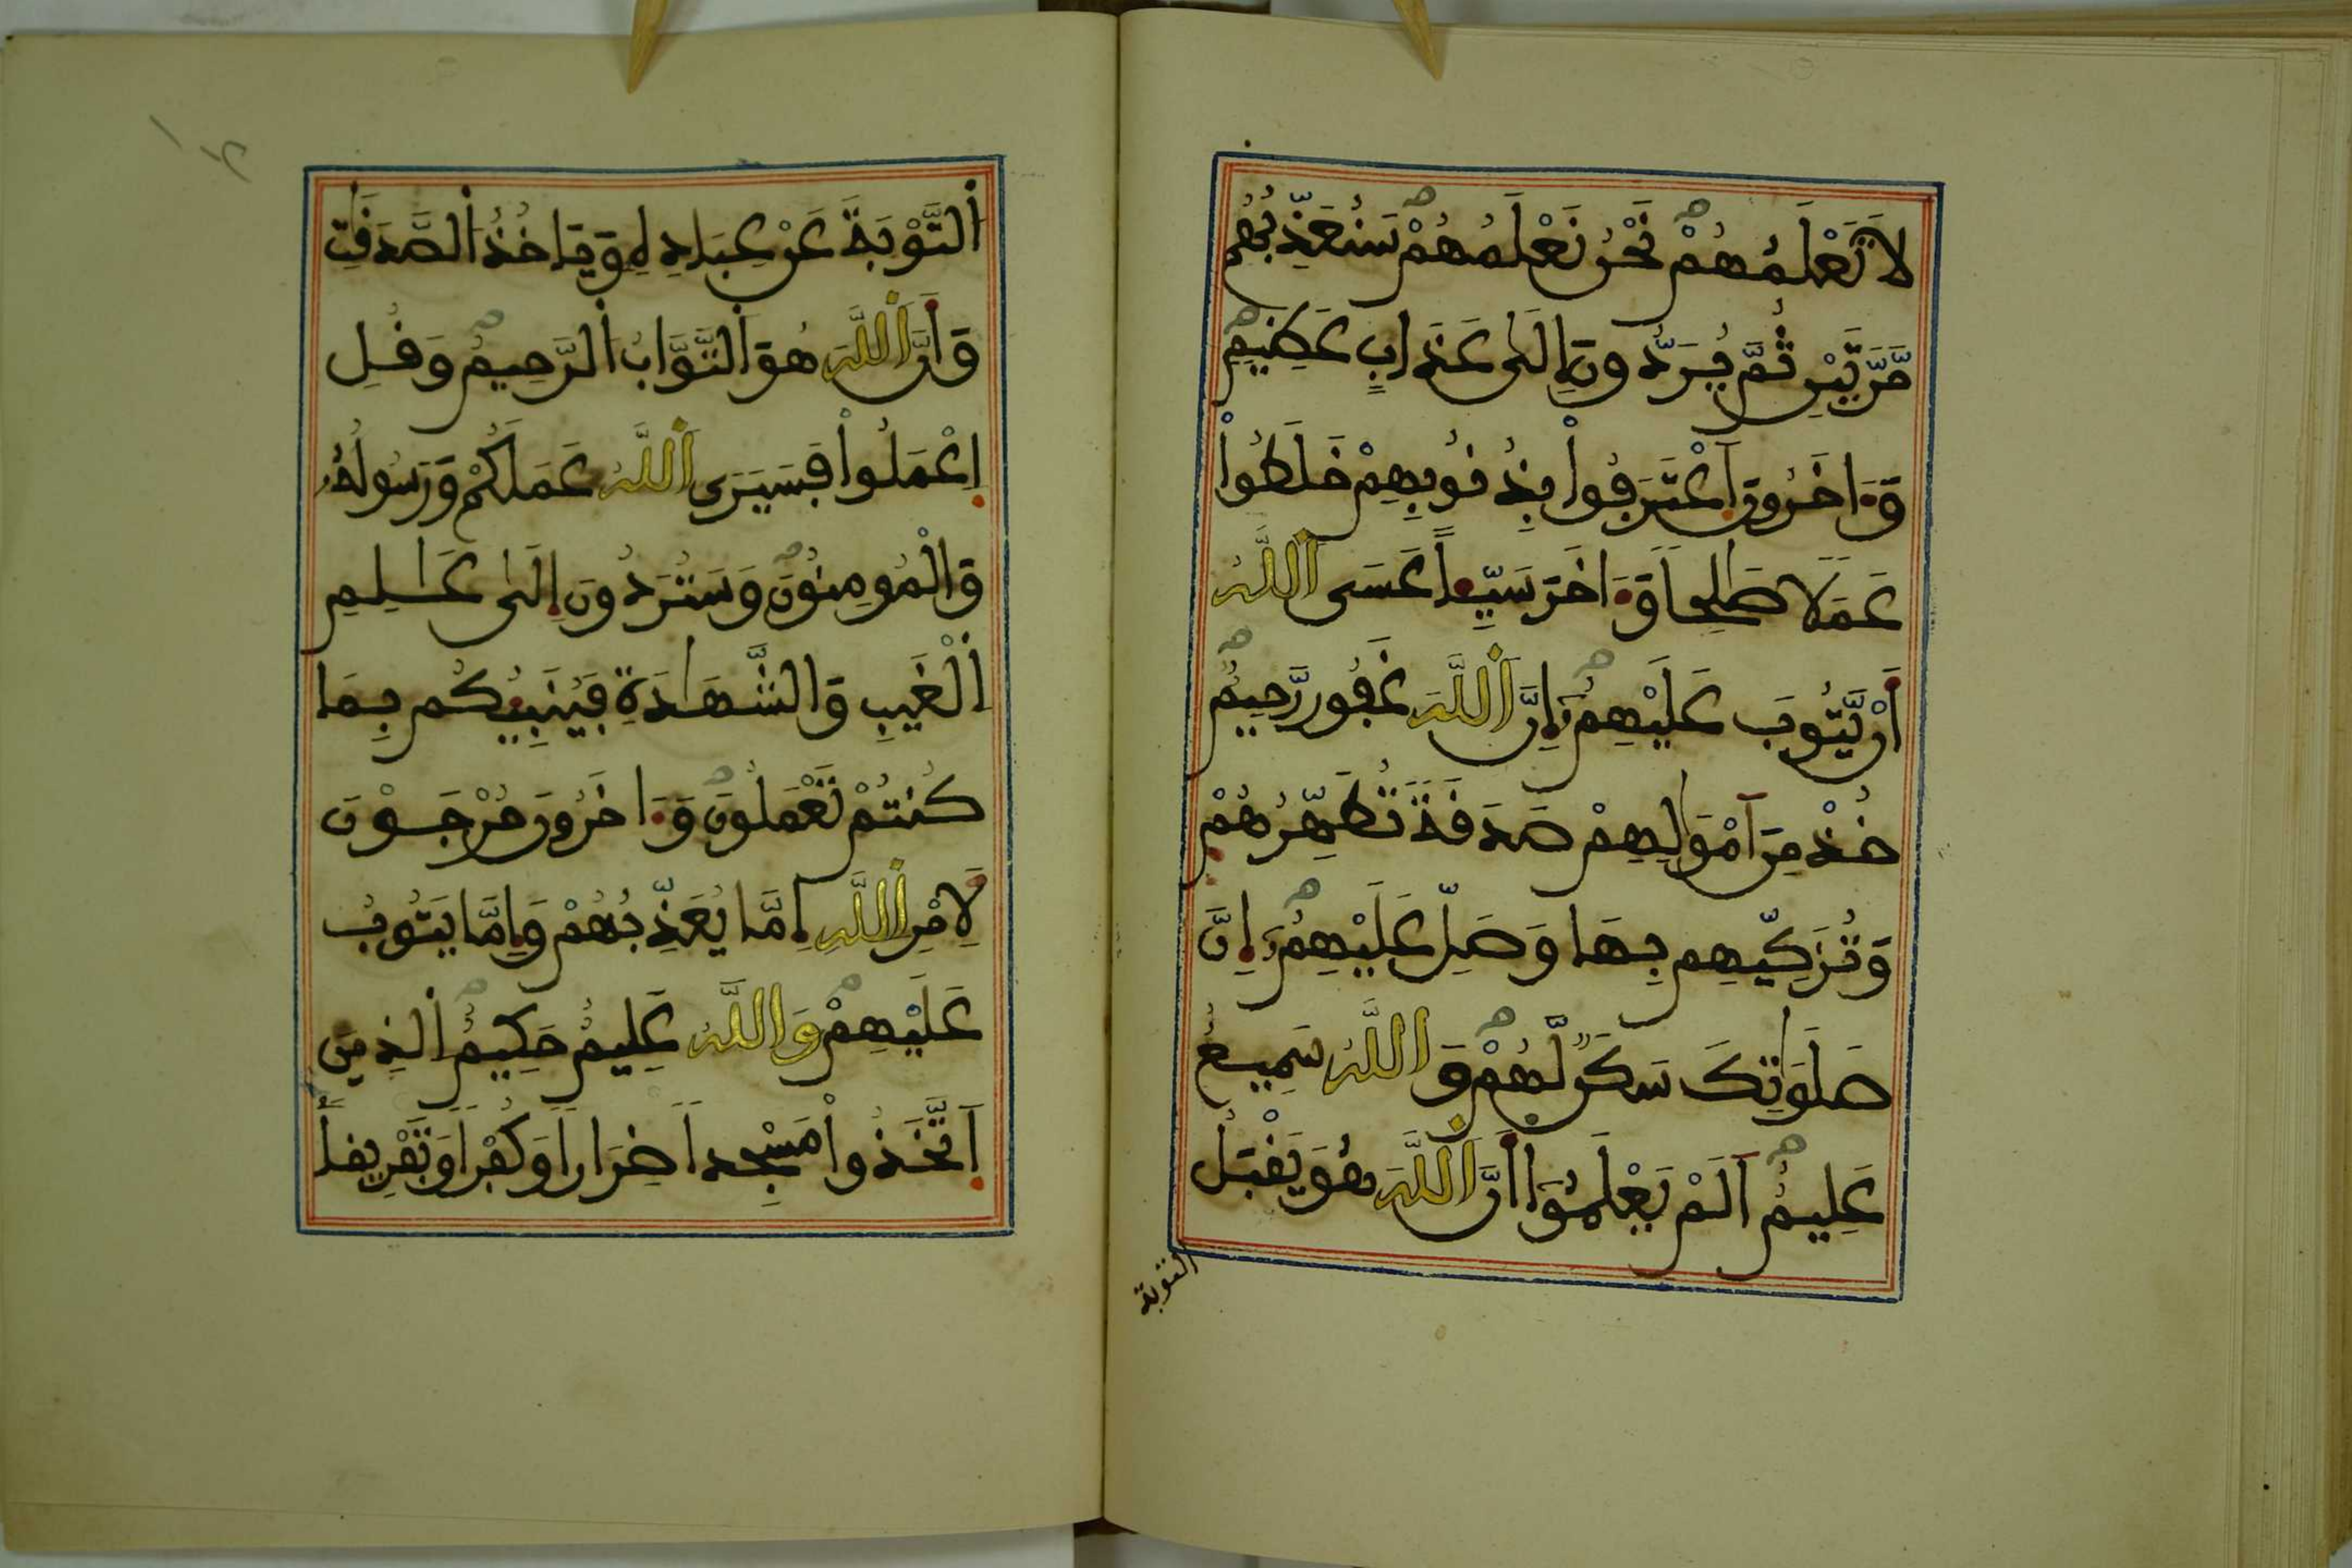 لَا تَعْلَمُهُمْ نَحْنُ نَعْلَمُهُمْ سَنُعَذِّبُهُم
مَّرَّتَيْنِ ثُمَّ يُرَدُّونَ إِلَىٰ عَذَابٍ عَظِيمٍ
وَءَاخَرُونَ اَعْتَرَفُواْ بِذُنُوبِهِمْ خَلَطُواْ
عَمَلًا صَٰلِحاً وَءَاخَرَ سَيِّئاً عَسَى اَللَّهُ
أَنْ يَّتُوبَ عَلَيْهِمُ إِنَّ اَللَّهَ غَفُورٌ رَّحِيمٌ
خُذْ مِنَ اَمْوَٰلِهِمْ صَدَقَةً تُطَهِّرُهُمْ
وَتُزَكِّيهِم بِهَا وَصَلِّ عَلَيْهِمُ إِنَّ
صَلَوَٰتِكَ سَكَنٌ لَّهُمْ وَاللَّهُ سَمِيعٌ
عَلِيمٌ اَلَمْ يَعْلَمُواْ أَنَّ اَللَّهَ هُوَ يَقْبَلُ
التوبة
اَلتَّوْبَةَ عَنْ عِبَادِهِ وَيَاخُذُ اُلصَّدَقَٰتِ
وَأَنَّ اَللَّهَ هُوَ اَلتَّوَّابُ اُلرَّحِيمُ وَقُلِ
اِعْمَلُواْ فَسَيَرَى اَللَّهُ عَمَلَكُمْ وَرَسُولُهُ
وَالْمُومِنُونَ وَسَتُرَدُّونَ إِلَىٰ عَٰلِمِ
اِلْغَيْبِ وَالشَّهَٰدَةِ فَيُنَبِّئُكُم بِمَا
كُنتُمْ تَعْمَلُونَ وَءَاخَرُونَ مُرْجَوْنَ
لِأَمْرِ اِللَّهِ إِمَّا يُعَذِّبُهُمْ وَإِمَّا يَتُوبُ
عَلَيْهِمْ وَاللَّهُ عَلِيمٌ حَكِيمٌ اُلذِينَ
اَتَّخَذُواْ مَسْجِداً ضِرَاراً وَكُفْراً وَتَفْرِيقاً